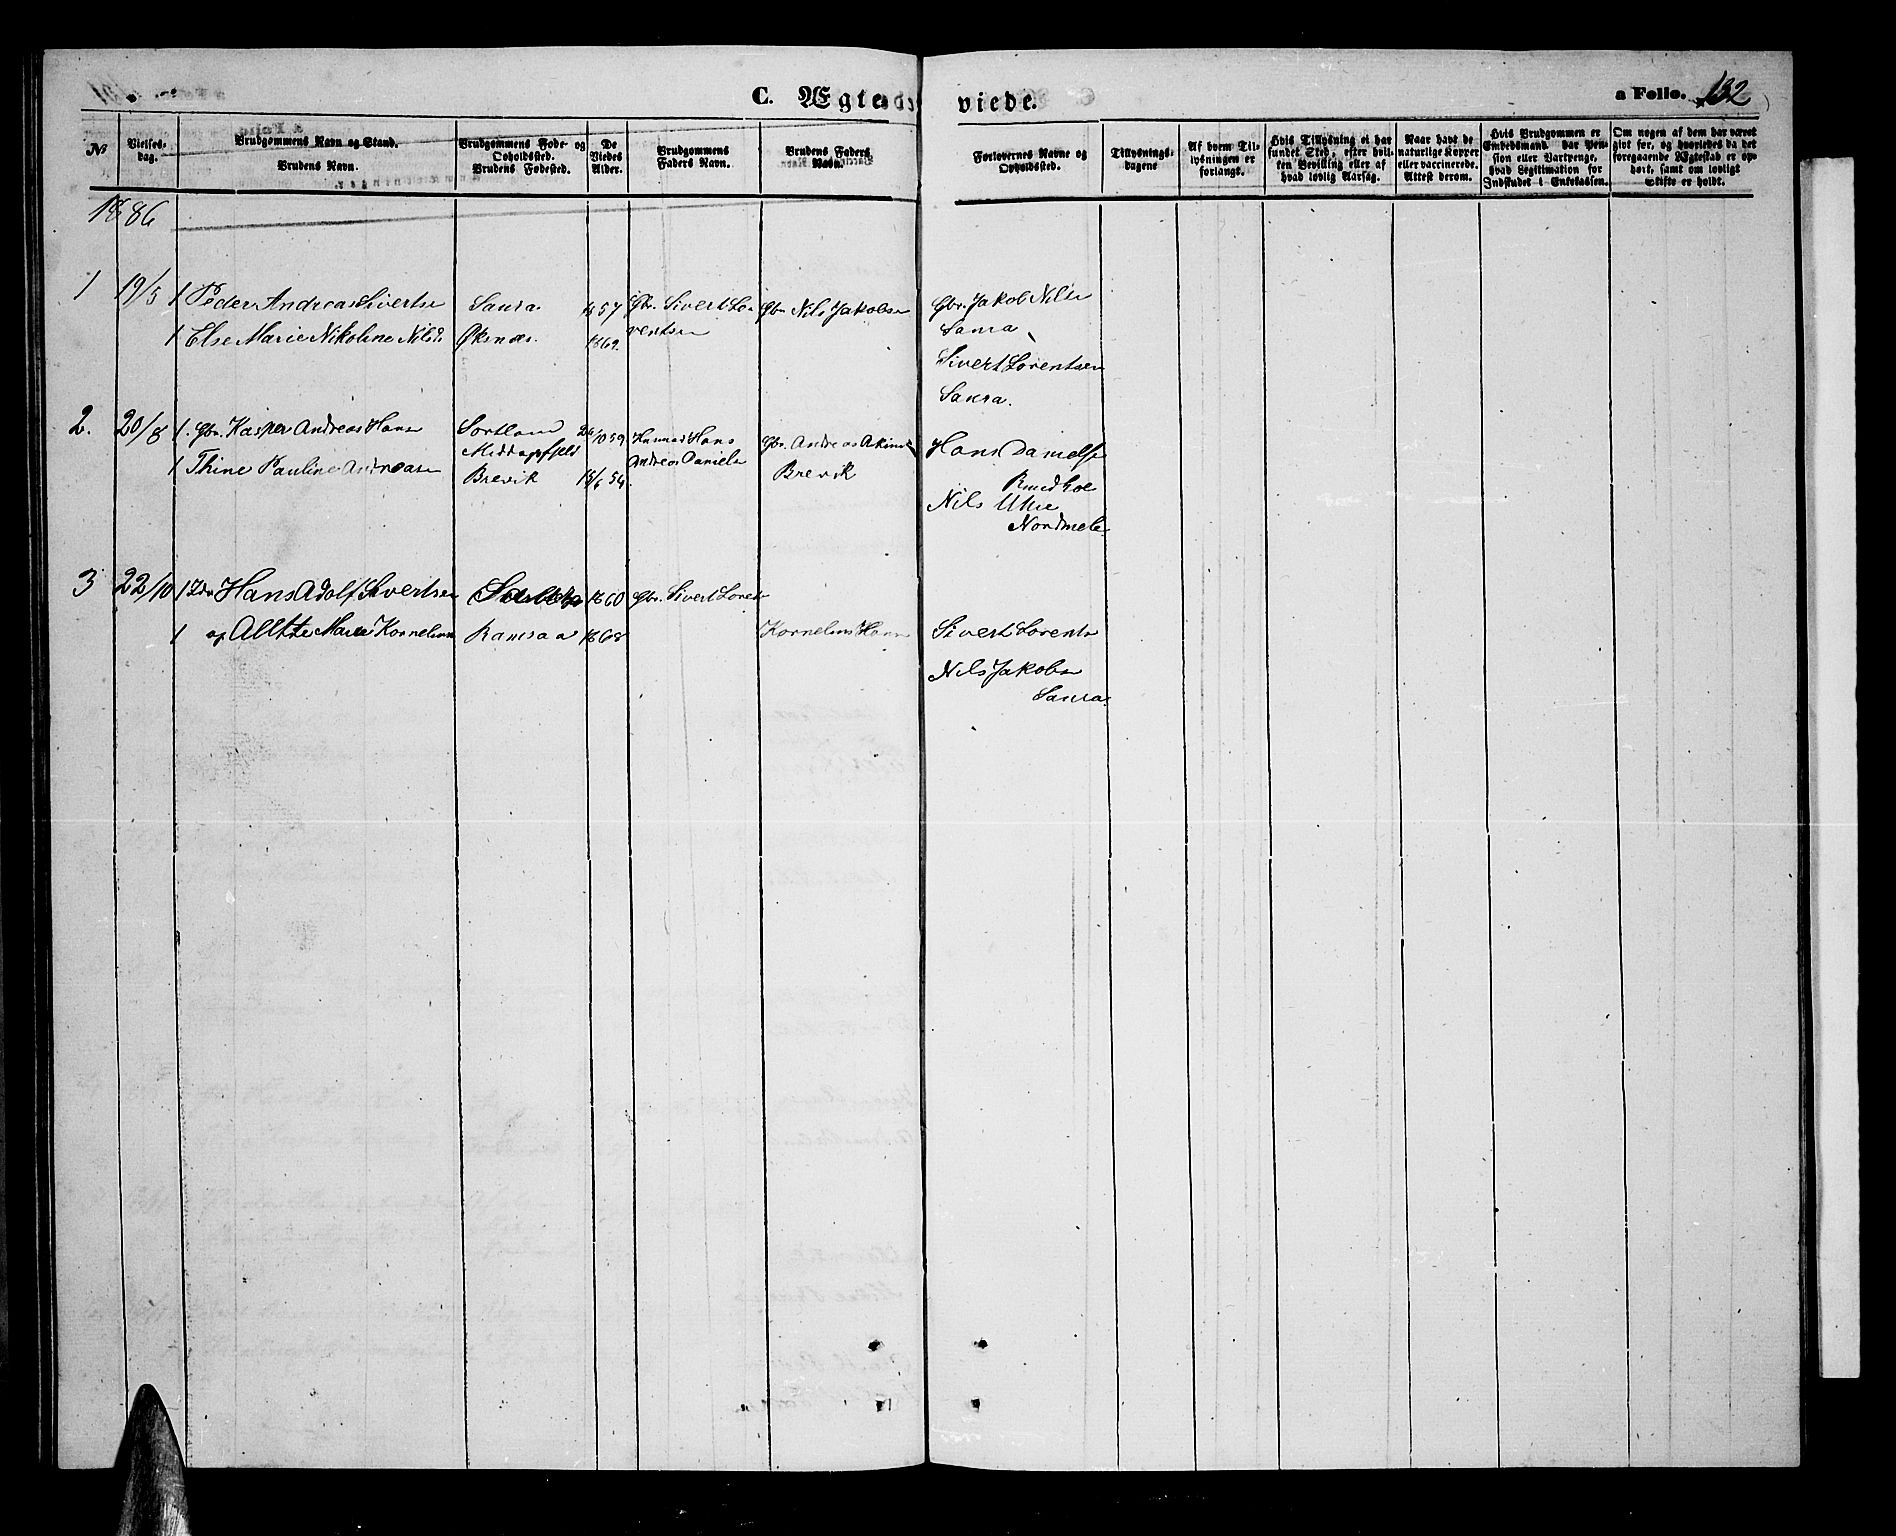 C. Ægteviede.
a Folio. 132
№
Vielses-
dag.
Brudgommens Navn og Stand.
Brudens Navn.
Brudgommens Føde- og
Opholdssted.
Brudens Fødested.
De
Viedes
Alder.
Brudgommens
Faders Navn.
Brudens Faders
Navn.
Forlovernes Navne og
Opholdssted.
Tillysnings-
dagene
Af hvem Til-
lysningen er
forlangt.
Hvis Tillysning ei har
fundet Sted, efter hvil-
ken Bevilling eller af
hvad lovlig Aarsag.
Naar havt de
naturlige Kopper
eller vaccinerede.
Attest derom.
Hvis Brudgommen er
Embedsmand har Pen-
sion eller Vartpenge,
hvad Legitimation for
Indskudet i Enkekassen.
Om nogen af dem har været
gift før, og hvorledes da det
foregaaende Ægteskab er op-
hørt, samt om lovligt
Skifte er holdt.
1886
1 19/5 1 Peder Andreas Sivertsen Saura 1857 Gbr. Sivert Lo- Gbr. Nils Jakobsen Gbr. Jakob Nilsen
1 Else Marie Nikoline Nilsd. Øksnæs. 1869. rentsen Saura
Sivert Lorentsen
Saura.
2. 20/8 1. Gbr. Kasper Andreas Hansen Sortland 26/10 59 Husmd Hans Gbr. Andreas Hans Danielsen
1 Thine Pauline Andreasen Brevik 15/6 54 Andreas Daniels Brevik
Nils
Nordmele
3 22/10 1 Hans Adolf Sivertsen 1860 Gbr. Sivert Lorents
1 og Marie Kornelius Ramsaa 1868 Kornelius Hansen Sivert Lorents
Nils Jakobsen
Saura.